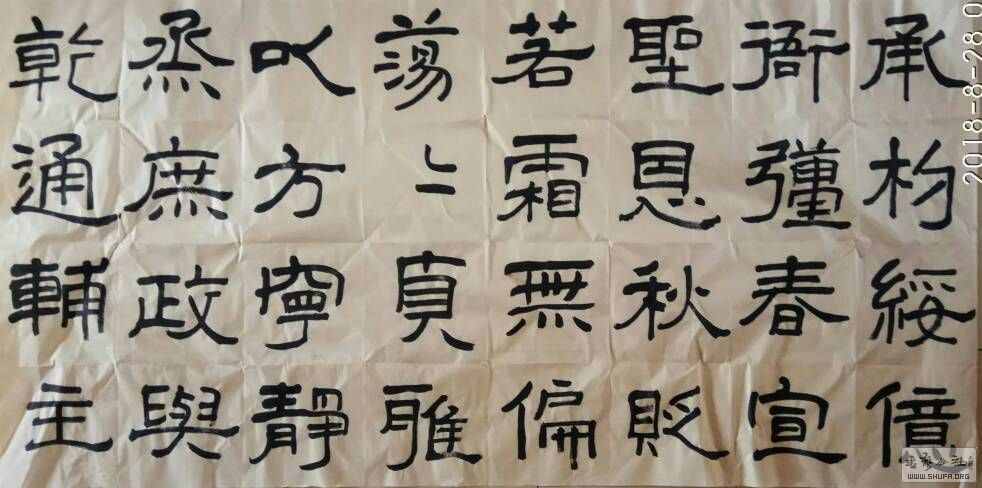 承杓綏億
衙彊春宣
聖恩秋貶
若霜無偏
蕩〻貞雅
㕥方寧靜
烝庶政與
乾通輔主
2018-8-28 0
WWW.SHUFA.ORG